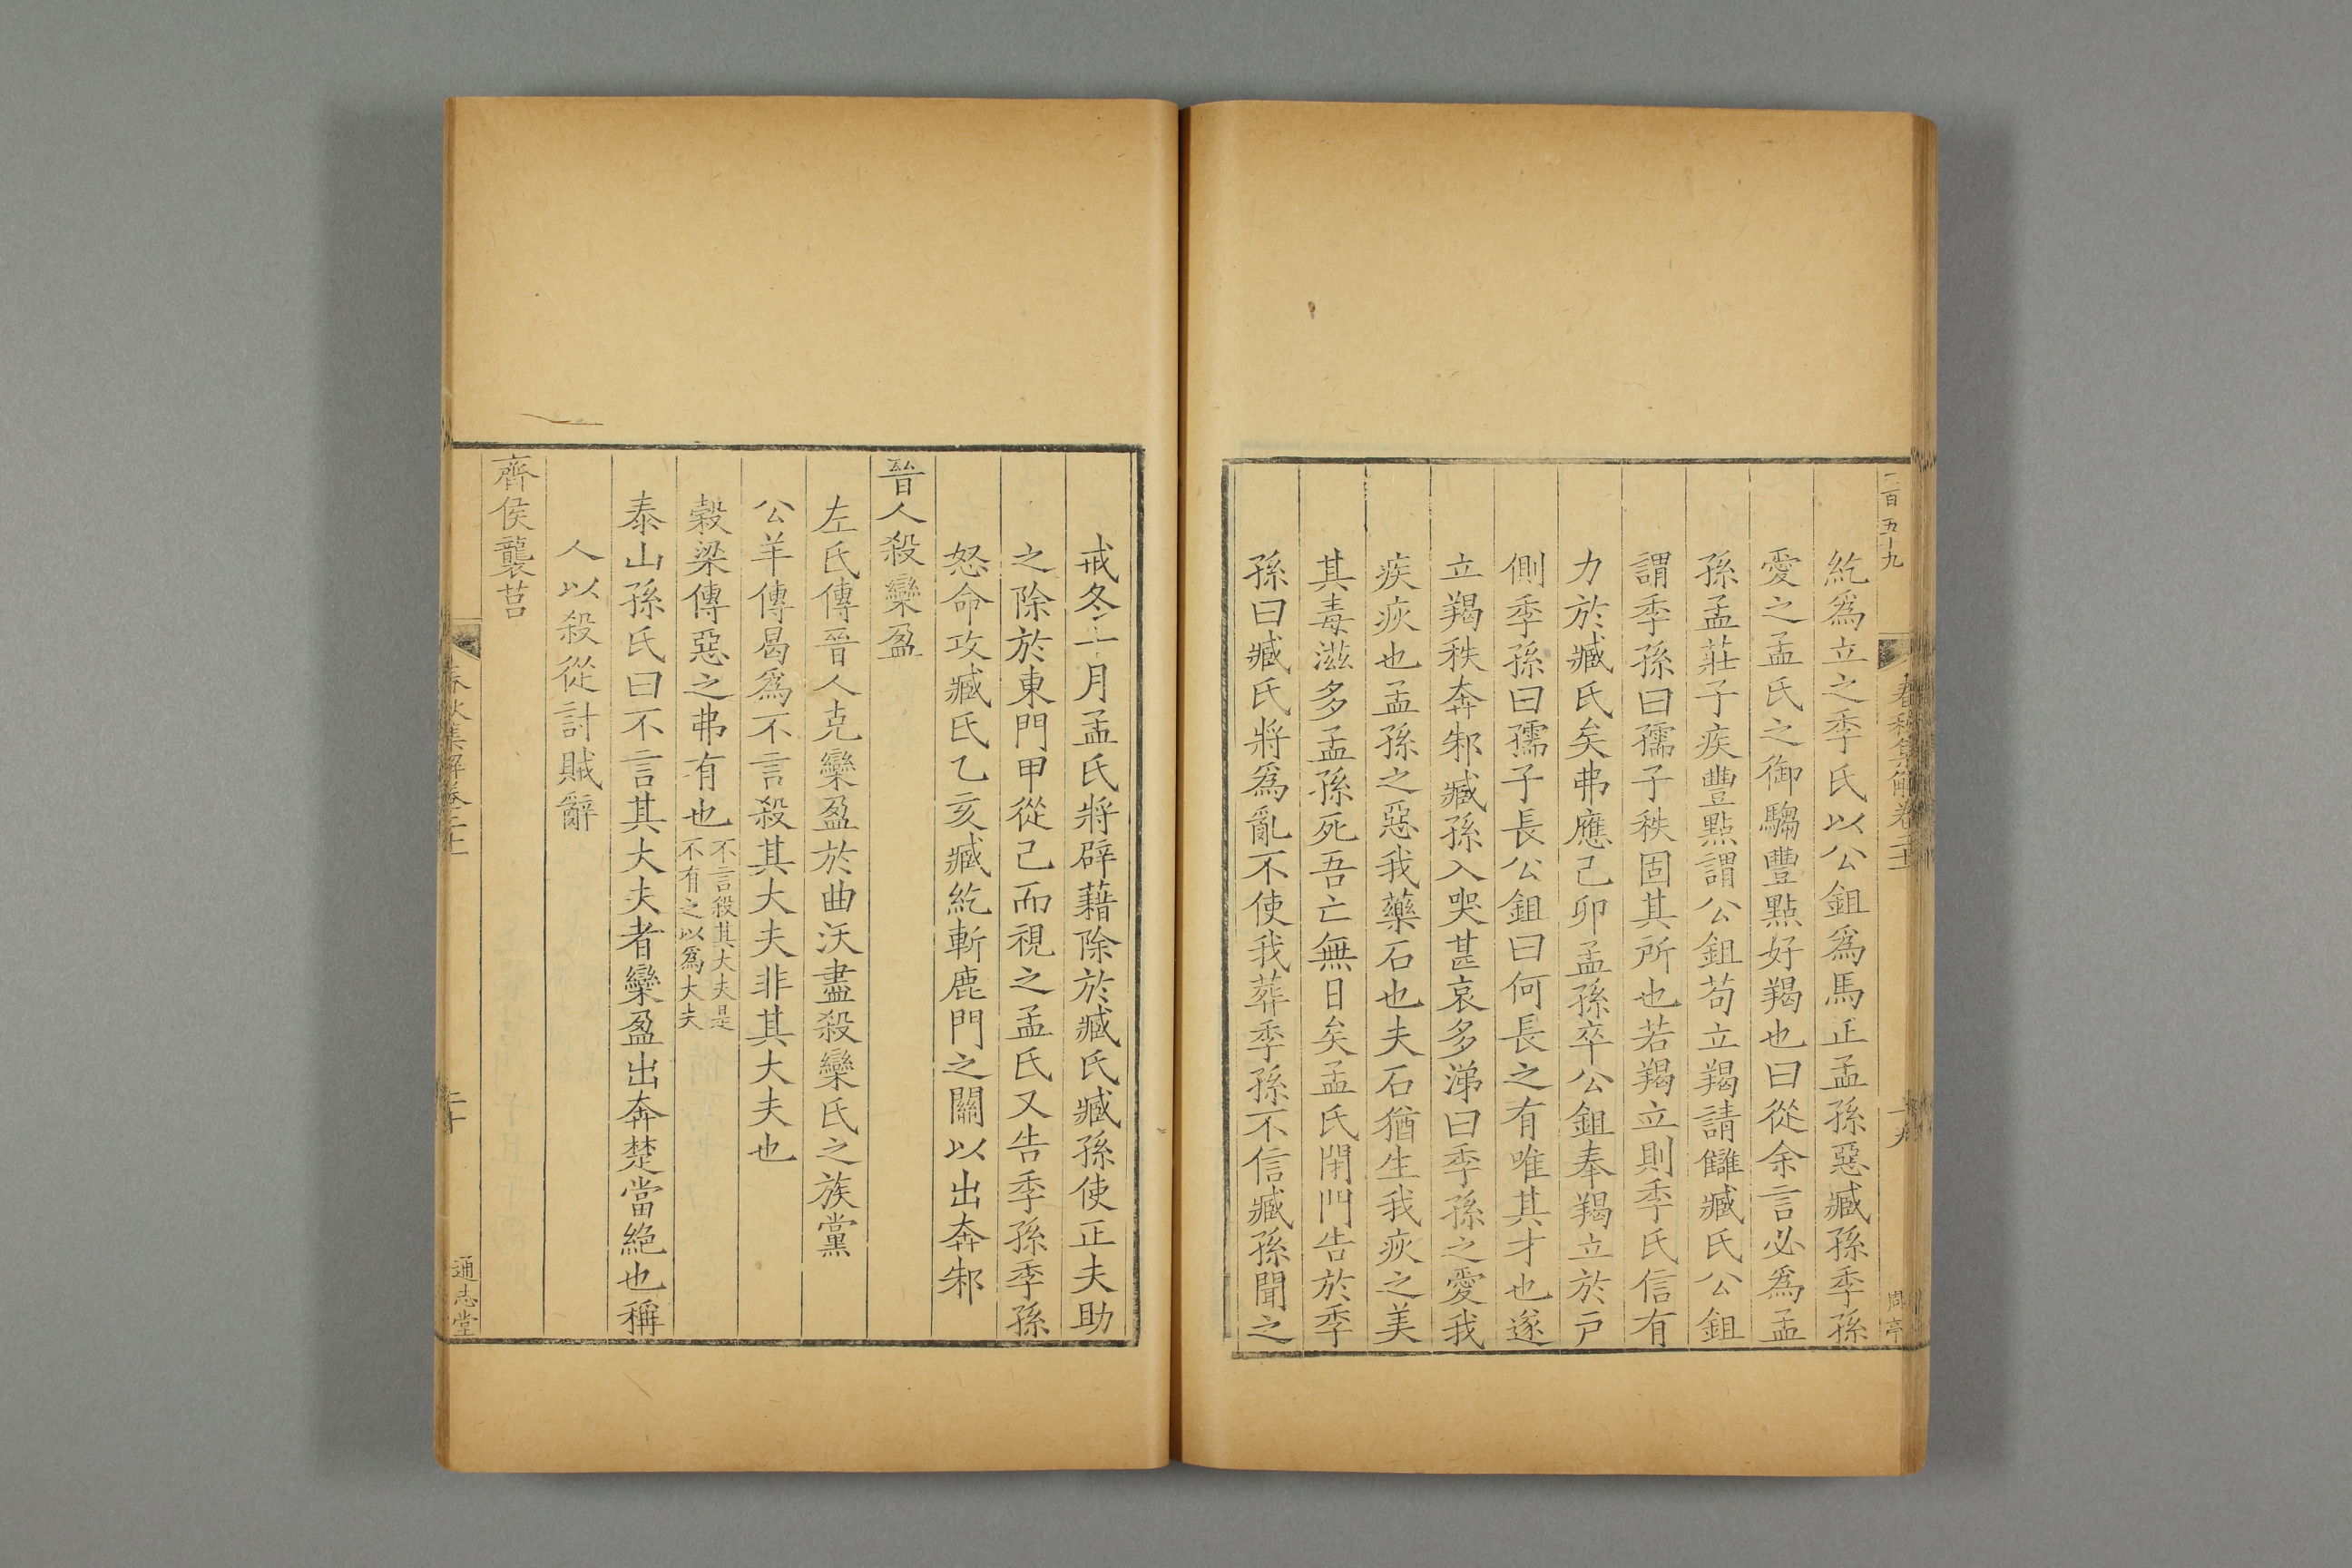 二百五十九
春秋集解卷二十
十九
周亭
紇爲立之季氏以公鉏爲馬正孟孫惡臧孫季孫
愛之孟氏之御騶豐點好羯也曰從余言必爲孟
孫孟莊子疾豐點謂公鉏苟立羯請讎臧氏公鉏
謂季孫曰孺子秩固其所也若羯立則季氏信有
力於臧氏矣弗應己卯孟孫卒公鉏奉羯立於戸
側季孫曰孺子長公鉏曰何長之有唯其才也遂
立羯秩奔邾臧孫入哭甚哀多涕曰季孫之愛我
疾疢也孟孫之惡我藥石也夫石猶生我疢之美
其毒滋多孟孫死吾亡無日矣孟氏閉門告於季
孫曰臧氏將爲亂不使我葬季孫不信臧孫聞之
戒冬十月孟氏將辟藉除於臧氏臧孫使正夫助
之除於東門甲從己而視之孟氏又告季孫季孫
怒命攻臧氏乙亥臧紇斬鹿門之關以出奔邾
晉人殺欒盈
左氏傳晉人克欒盈於曲沃盡殺欒氏之族黨
公羊傳曷爲不言殺其大夫非其大夫也
穀梁傳惡之弗有也不言殺其大夫是
不有之以爲大夫
泰山孫氏曰不言其大夫者欒盈出奔楚當絕也稱
人以殺從討賊辭
齊侯襲莒
春秋集解卷二十
二十
通志堂